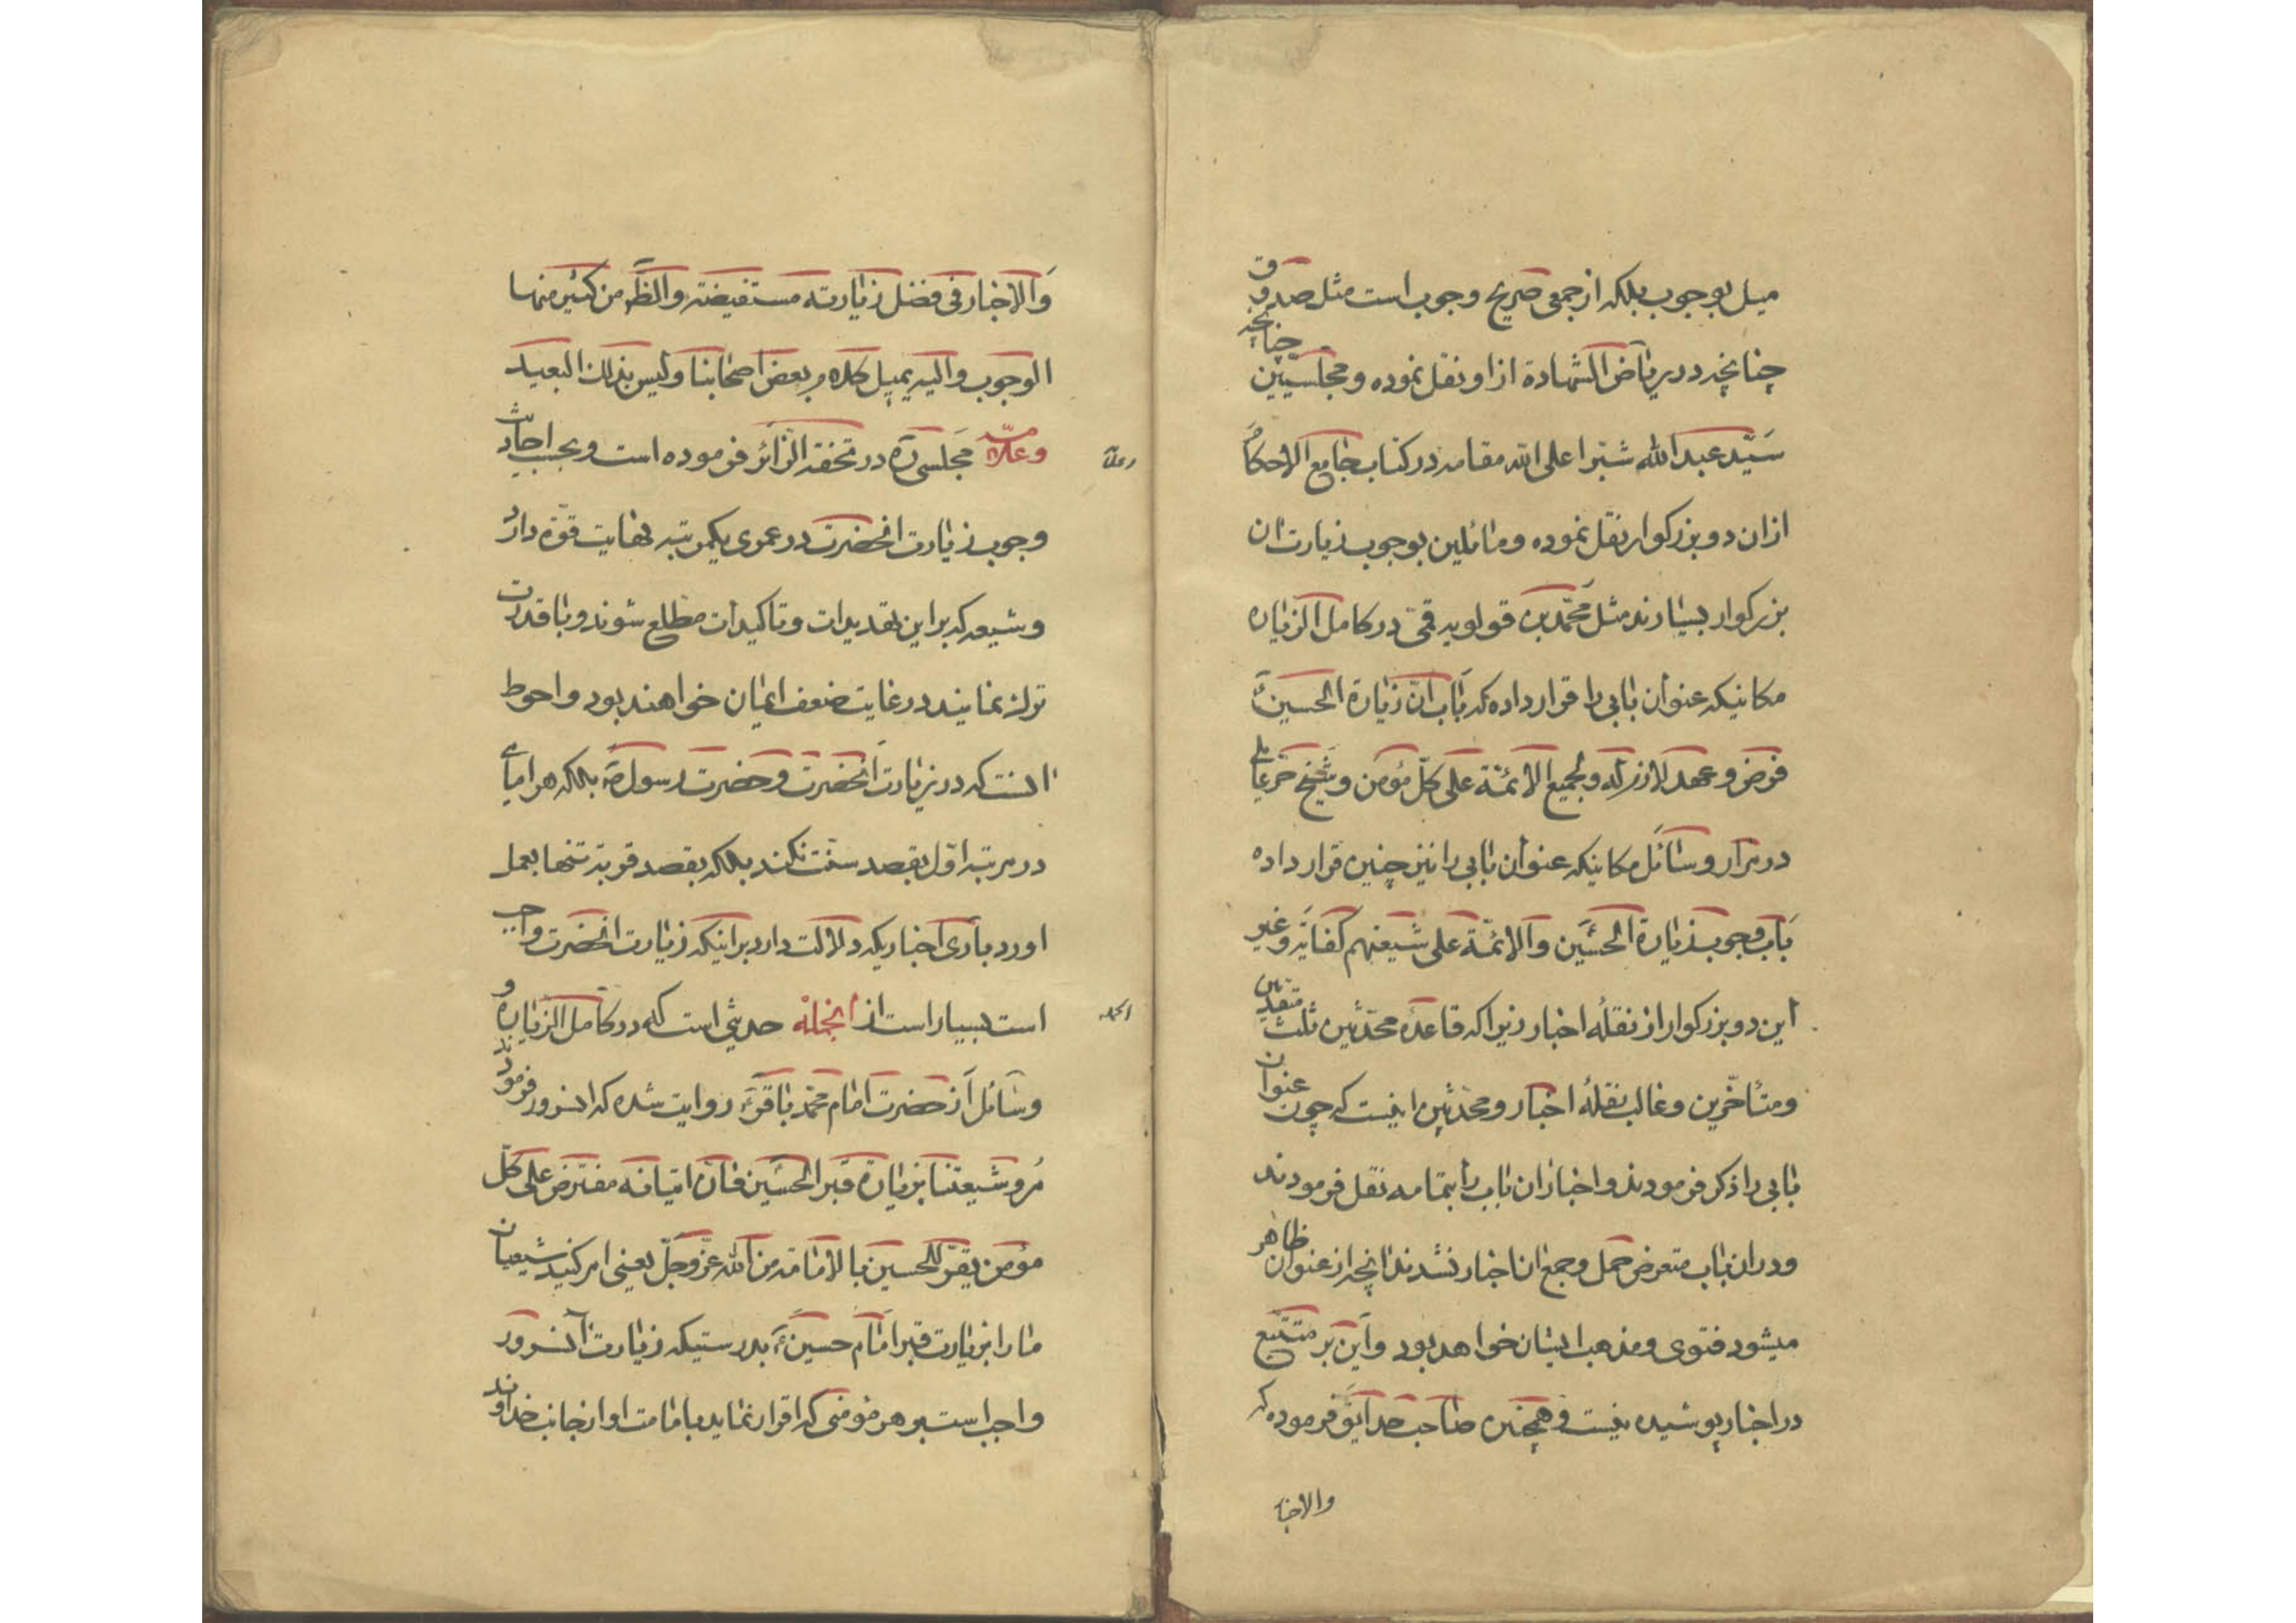 میل بوجوب بلکه از جمعی صریح وجوب است مثل صدوق
چنانچه
چنانچه در ریاض الشهادة از او نقل نموده و مجلسیین
سیّد عبد الله شبّر اعلی الله مقامه در کتاب جامع الاحکام
از ان دو بزرکوار نقل نموده و مائلین بوجوب زیارت ان
بزرکوار بسیارند مثل محمّد بن قولویه قمی در کامل الزیاره
مکانیکه عنوان بابی را قرار داده که باب انّ زیارة الحسینؑ
فرض و عهد لازم له و لجمیع الائمّة علی کلّ مؤمن و شیخ حرّ عاملی
در مزار وسائل مکانیکه عنوان بابی را نیز چنین قرار داده
باب وجوب زیارة الحسین والائمّة علی شیعتهم کفایة و غیر
این دو بزرکوار از نقلهٔ اخبار زیرا که قاعدهٔ محدّثین ثلث متقدمین
ومتأخّرین وغالب نقلهٔ اخبار ومحدّثین اینست که چون عنوان
بابی را ذکر فرمودند و اخبار ان باب را بتمامه نقل فرمودند
ودر ان باب متعرض حمل وجمع ان اخبار نشدند انچه از عنوان ظاهر
میشود فتوی ومذهب ایشان خواهد بود و این بر متتبّع
در اخبار پوشیده نیست و همچنین صاحب حدایق فرموده که
والاخبا
والاخبار فی فضل زیارته مستفیضة والظّ من کثیر منها
الوجوب والیه یمیل کلام بعض اصحابنا ولیس بذلك البعید
وعلامه مجلسی ره در تحفة الزائر فرموده است وبحسب احادیث
وجوب زیارت انحضرت در عمری یکمرتبه نهایت قوّة دارد
وشیعه که بر این تهدیدات وتاکیدات مطّلع شوند و با قدرت
ترك نمایند در غایت ضعف ایمان خواهند بود و احوط
انست که در زیارت انحضرت و حضرت رسولص بلکه هر امامی
در مرتبه اوّل بقصد سنّت نکند بلکه بقصد قربة تنها بعمل
اورد باری اخباریکه دلالت دارد بر اینکه زیارت انحضرت واجب
است بسیار است از انجمله حدیثی است که در کامل الزیاره و
وسائل از حضرت امام محمّد باقرؑ روایت شده که انسرور فرمودند
مُروا شیعتنا بزیارة قبر الحسین فانّ اتیانه مفترض علی کلّ
مؤمن یقرّ للحسین بالامامة من الله عزّ وجلّ یعنی امر کنید شیعیان
ما را بزیارت قبر امام حسینؑ بدرستیکه زیارت آنسرور
واجب است بر هر مؤمنی که اقرار نماید بامامت او از جانب خداوند